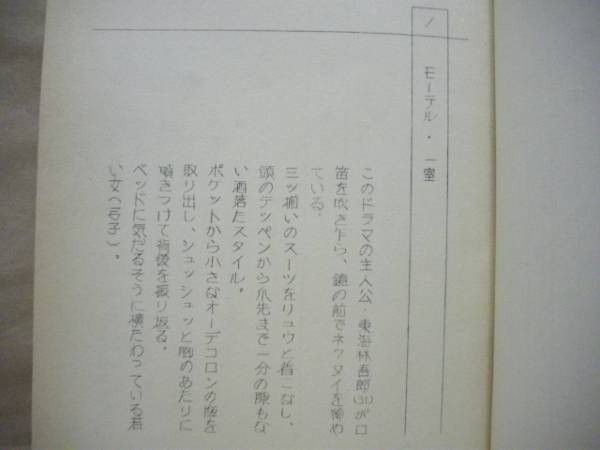 1 モーテル・一室
このドラマの主人公・東海林吾郎(31)が口
笛を吹き乍ら、鏡の前でネクタイを締め
ている。
三ツ揃いのスーツをリュウと着こなし、
頭のテッペンから爪先まで一分の隙もな
い洒落たスタイル。
ポケットから小さなオーデコロンの瓶を
取り出し、シュッシュッと胸のあたりに
噴きつけて背後を振り返る。
ベッドに気だるそうに横たわっている若
い女(石子)。